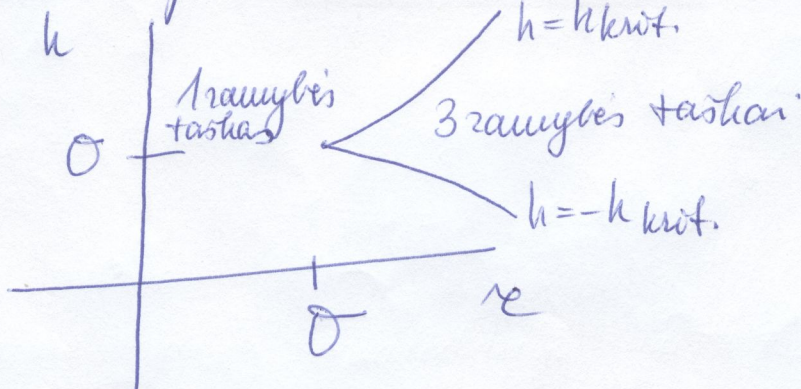 h
h = h krit.
1 ramybės
taškas
3 ramybės taškai
0
h = -h krit.
0
r